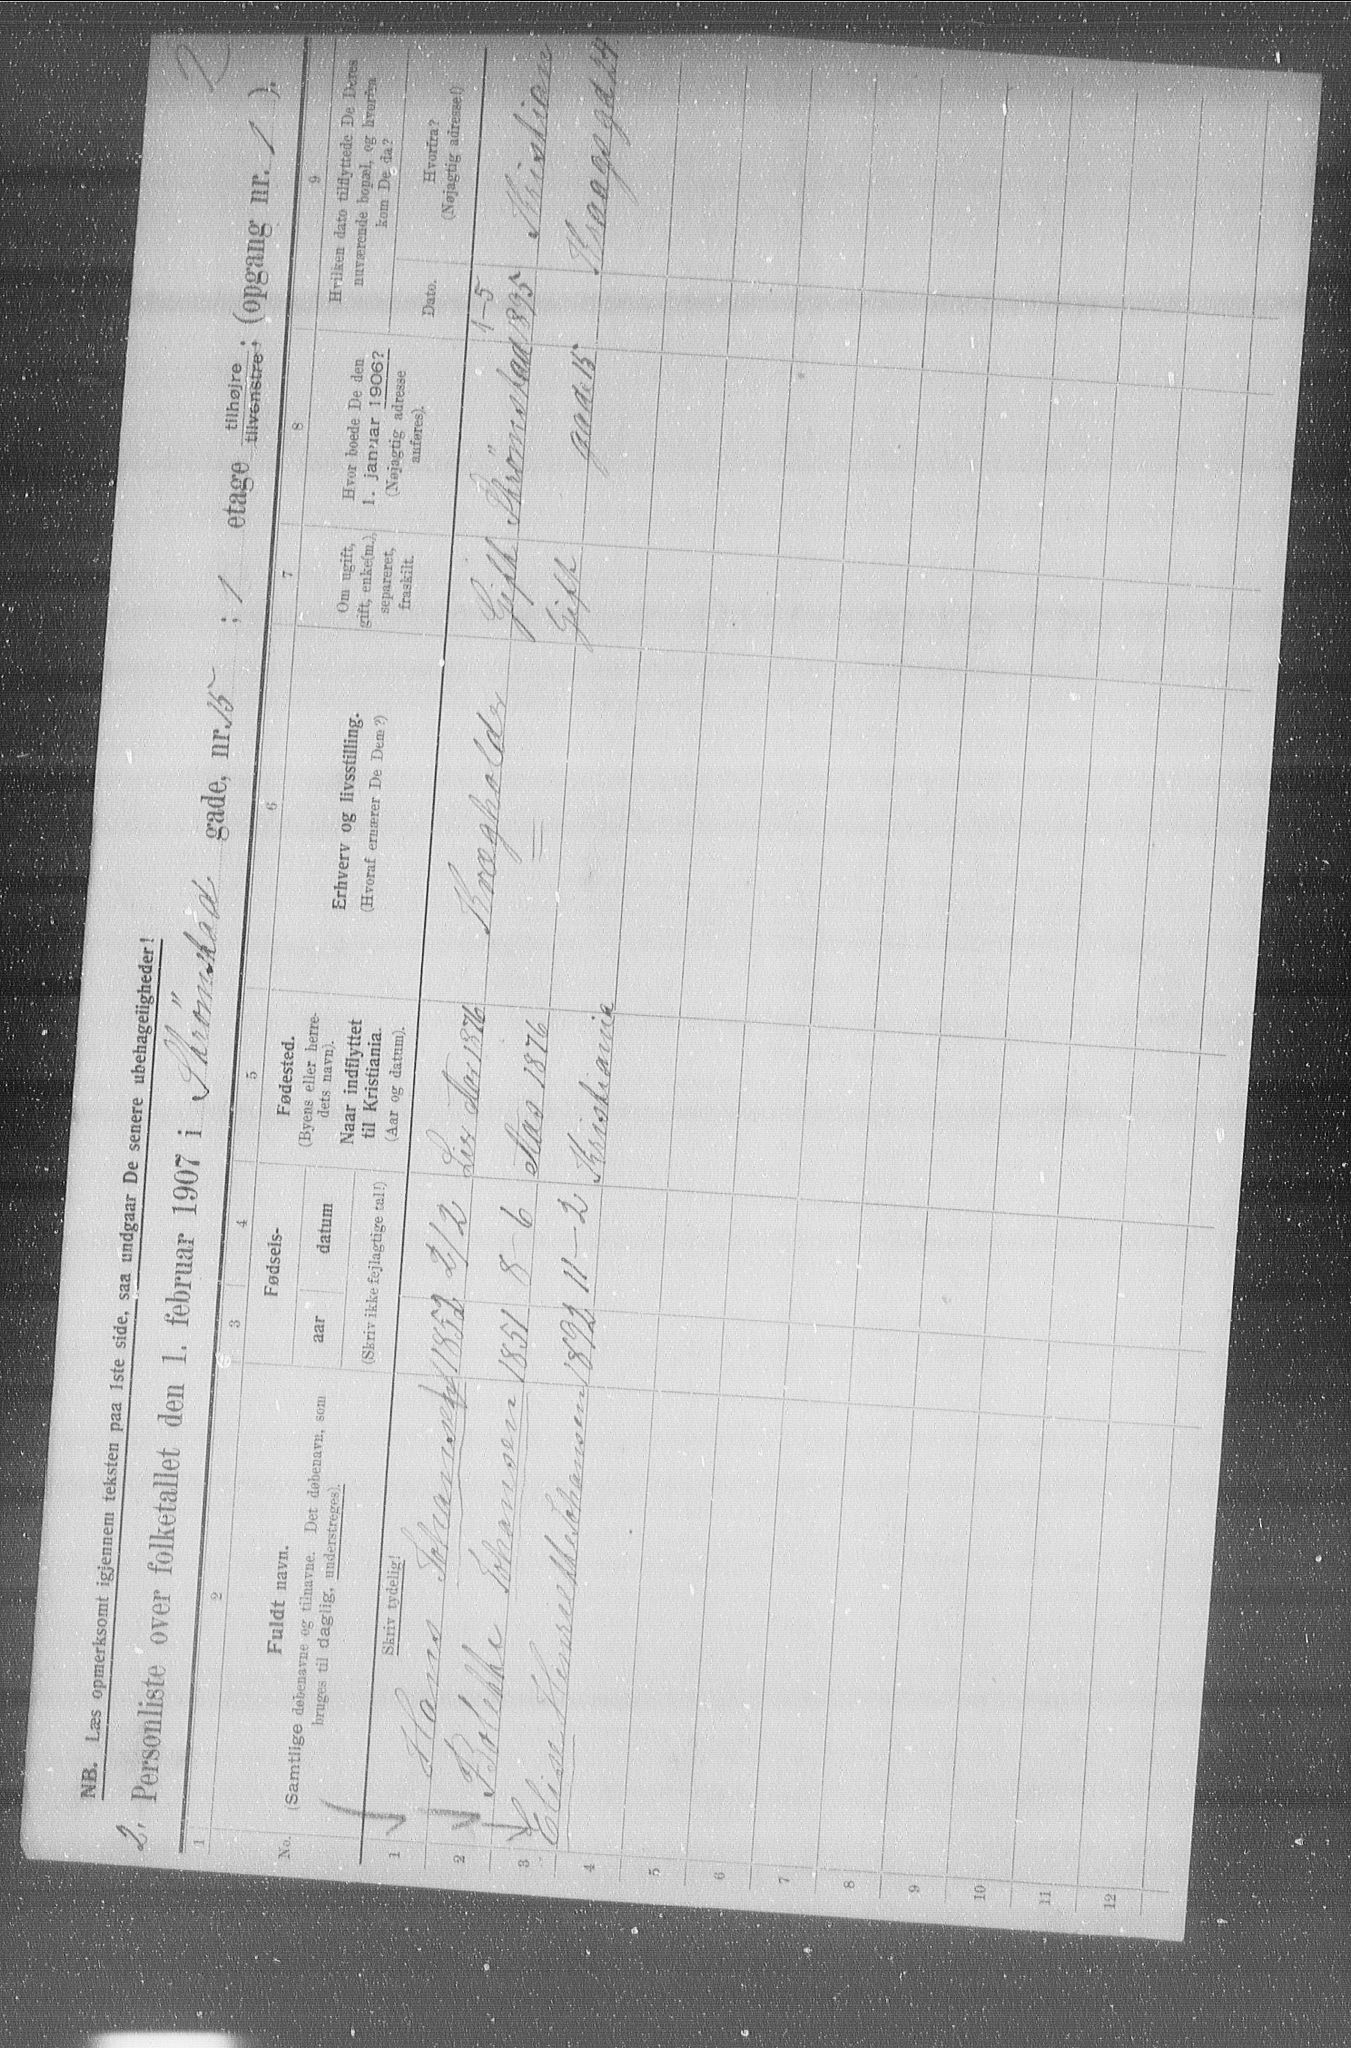 NB. Læs opmerksomt igjennem teksten paa 1ste side, saa undgaar De senere ubehageligheder!
2. Personliste over folketallet den 1. februar 1907 i Strömstad gade, nr. 15 ; 1 etage tilhøjre tilvenstre; (opgang nr. 1 ).
1 2 3 4 5 6 7 8 9
No.
Fuldt navn.
(Samtlige døbenavne og tilnavne. Det døbenavn, som
bruges til daglig, understreges).
Skriv tydelig!
Fødsels-
aar datum
(Skriv ikke fejlagtige tal!)
Fødested.
(Byens eller herre-
dets navn).
Naar indflyttet
til Kristiania.
(Aar og datum).
Erhverv og livsstilling.
(Hvoraf ernærer De Dem?)
Om ugift,
gift, enke(m.),
separeret,
fraskilt.
Hvor boede De den
1. januar 1906?
(Nøjagtig adresse
anføres).
Hvilken dato tilflyttede De Deres
nuværende bopæl, og hvorfra
kom De da?
Dato.
Hvorfra?
(Nøjagtig adresse!)
1 Hans Johansen 1852 2/2 1876 Gift Strömstad 1-5 1895 Kristian
2 Johansen 1851 8-6 Aas 1876 = Gift gade 15 Kraagsgd 24
3 Elise Henriette Johansen 1892 11-2 Kristiania
4
5
6
7
8
9
10
11
12